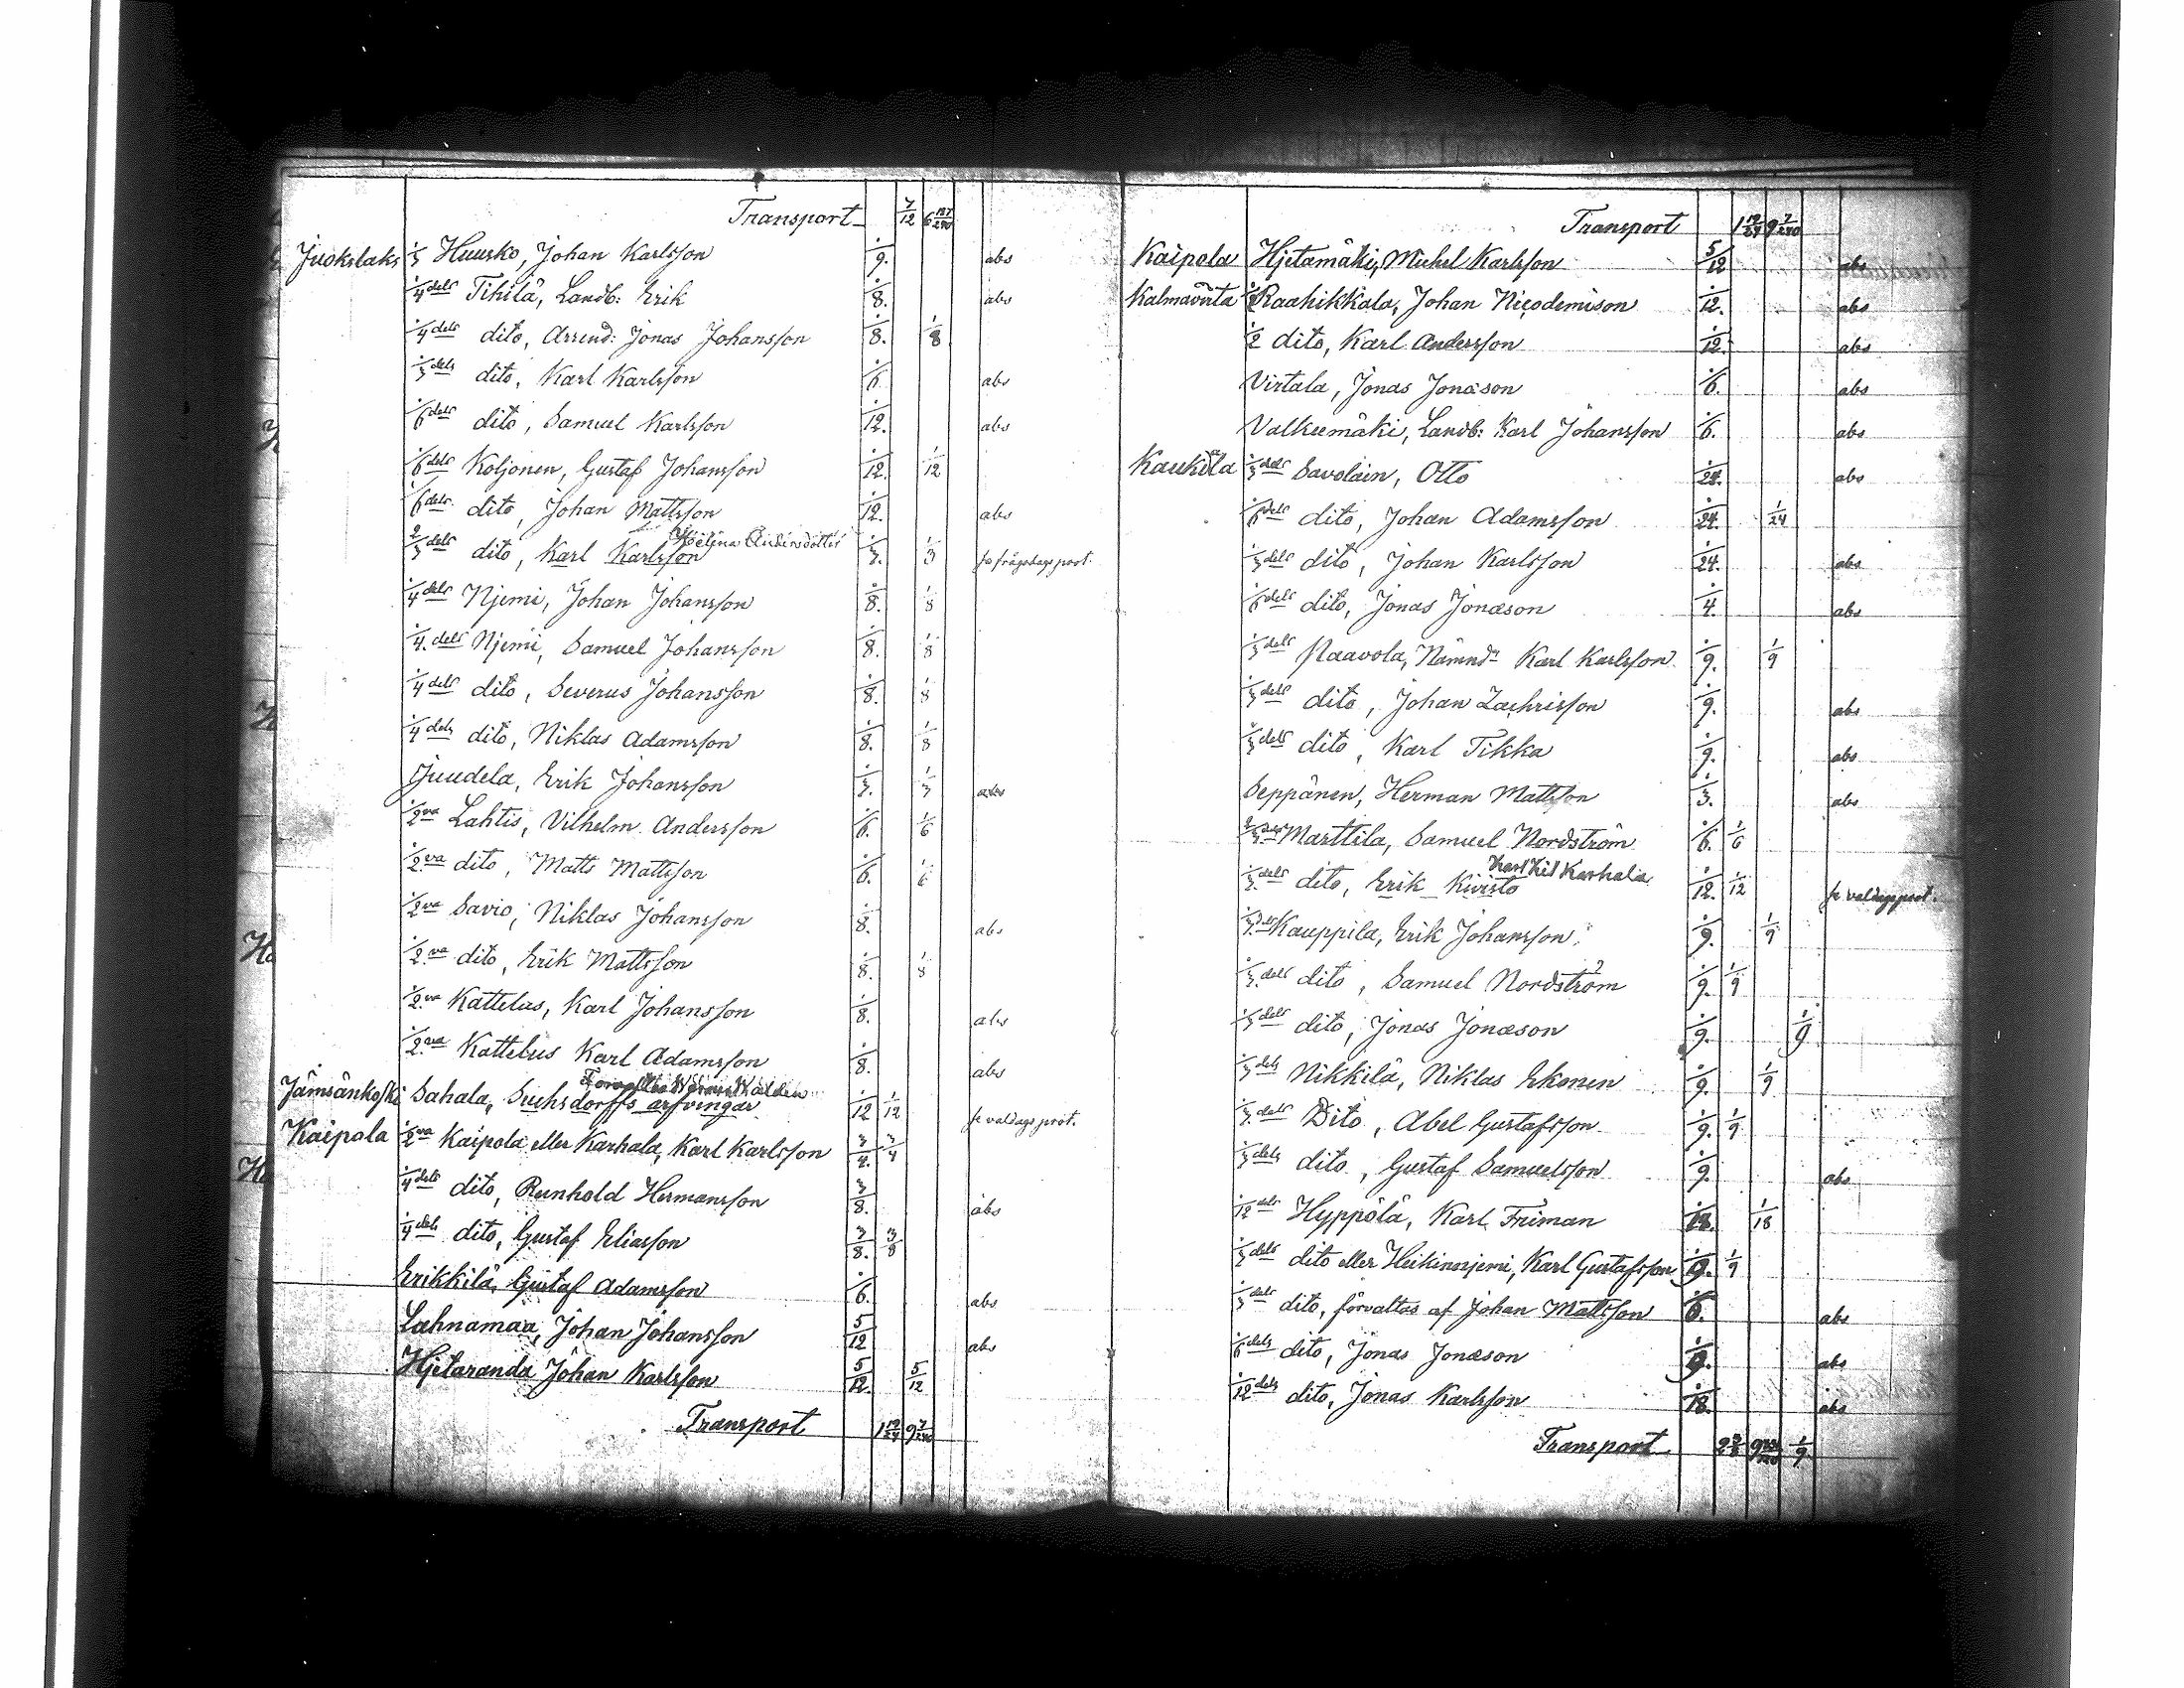 Transport 7/12 6 127/240
Juokslaks 1/3 Huusko, Johan Karlsson 1/9. abs
1/4 dels Tihilä, Landb: Erik 1/8. abs
1/4 dels dito, Arrend: Jonas Johansson 1/8. 1/8
1/3 dels dito, Karl Karlsson 1/6 abs
1/6 dels dito, Samuel Karlsson 1/12. abs
1/6 dels Koljonen, Gustaf Johansson 1/12. 1/12
1/6 dels dito, Johan Mattsson 1/12. abs
2/3 dels dito, Karl Karlsson 1/3. 1/3
1/4 dels Njemi, Johan Johansson 1/8. 1/8
1/4 dels Njemi, Samuel Johansson 1/8. 1/8
1/4 dels dito, Severus Johansson 1/8. 1/8
1/4 dels dito, Niklas Adamsson 1/8. 1/8
Juudela, Erik Johansson 1/3. 1/3 abs
1/2 va Lahtis, Vilhelm Andersson 1/6. 1/6
1/2 va dito, Matts Mattsson 1/6. 1/6
1/2 va Savio, Niklas Johansson 1/8. abs
1/2 va dito, Erik Mattsson 1/8. 1/8
1/2 va Kattelus, Karl Johansson 1/8. abs
1/2 va Kattelus Karl Adamsson 1/8. abs
Jämsänkoski Sahala, Suchsdorffs arfvingar 1/12 1/12 se valdags prot.
Kaipola 1/2 va Kaipola eller Karhala, Karl Karlsson 3/4. 3/4
1/4 dels dito, Reinhold Hermansson 3/8. abs
1/4 dels dito, Gustaf Eliasson 3/8. 3/8
Erikkilä, Gustaf Adamsson 1/6. abs
Lahnamaa, Johan Johansson 5/12 abs
Hjetaranda Johan Karlsson 5/12. 5/12
Transport 1 19/24 9 7/240
Transport 1 19/24 9 7/240
Kaipola Hjetamäki, Mickel Karlsson 5/12 abs
Kalmavirta 1/2 Raahikkala, Johan Nicodemison 1/12. abs
1/2 dito, Karl Andersson 1/12. abs
Virtala, Jonas Jonasson 1/6. abs
Valkeemäki, Landb: Karl Johansson 1/6. abs
Kaukola 1/3 dels Savolain, Otto 1/24. abs
1/6 dels dito, Johan Adamsson 1/24. 1/24
1/3 dels dito, Johan Karlsson 1/24. abs
1/6 dels dito, Jonas Jonæson 1/4. abs
1/3 dels Paavola, Nämnd: Karl Karlsson 1/9. 1/9
1/3 dels dito, Johan Zachrisson 1/9. abs
1/3 dels dito, Karl Tikka 1/9. abs
Seppänen, Herman Mattsson 1/3. abs
2/3 dels Marttila, Samuel Nordström 1/6. 1/6
Karhala
1/3 dels dito, Erik Kivistö 1/12. 1/12 se valdags prot.
1/3 dels Kauppila, Erik Johansson 1/9. 1/9
1/3 dels dito, Samuel Nordström 1/9. 1/9
1/3 dels dito, Jonas Jonæson 1/9. 1/9
1/3 dels Nikkilä, Niklas Ekonen 1/9. 1/9
1/3 dels Dito, Abel Gustafsson 1/9. 1/9
1/3 dels dito, Gustaf Samuelsson 1/9. abs
1/12 dels Hyppölä, Karl Friman 1/18. 1/18
1/3 dels dito eller Heikinnjemi, Karl Gustafsson 1/9. 1/9
1/3 dels dito, förvaltas af Johan Mattsson 1/6. abs
1/6 dels dito, Jonas Jonæson 1/9. abs
1/12 dels dito, Jonas Karlsson 1/18. abs
Transport 2 3/8 1/9